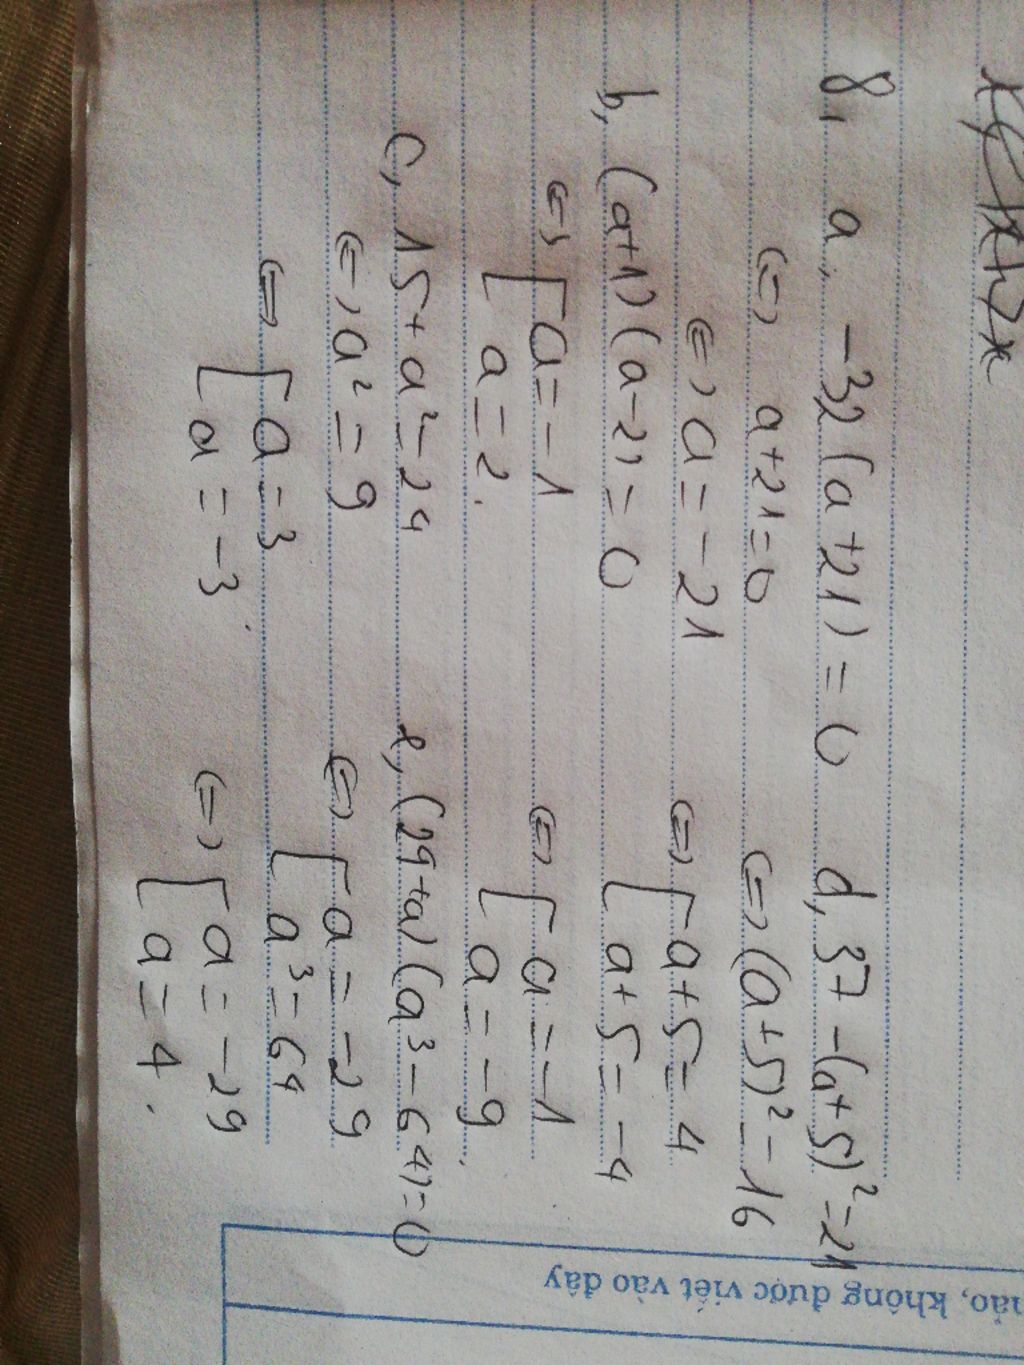 8, a, -32(a+21) = 0
<=> a+21=0
<=> a = -21
b, (a+1)(a-2) = 0
<=> [ a = -1
[ a = 2.
c, 15+a² = 24
<=> a² = 9
<=> [ a = 3
[ a = -3
d, 37 -(a+5)² = 21
<=> (a+5)² = 16
<=> [ a+5 = 4
[ a+5 = -4
<=> [ a = -1
[ a = -9.
e, (29+a)(a³-64) = 0
<=> [ a = -29
[ a³ = 64
<=> [ a = -29
[ a = 4.
không được viết vào đây